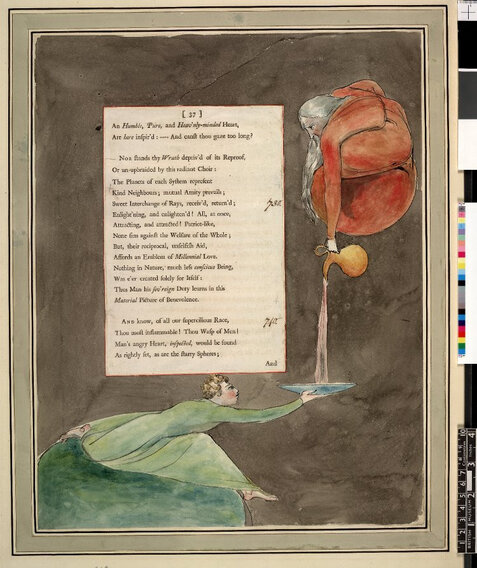 [ 37 ]
An Humble, Pure, and Heav'nly-minded Heart,
Are here inspir'd : —— And canst thou gaze too long?
Nor stands thy Wrath depriv'd of its Reproof,
Or un-upbraided by this radiant Choir :
The Planets of each System represent
Kind Neighbours; mutual Amity prevails;
Sweet Interchange of Rays, receiv'd, return'd;
Enlight'ning, and enlighten'd! All, at once,
Attracting, and attracted! Patriot-like,
None sins against the Welfare of the Whole;
But, their reciprocal, unselfish Aid,
Affords an Emblem of Millennial Love.
Nothing in Nature, much less conscious Being,
Was e'er created solely for Itself:
Thus Man his sov'reign Duty learns in this
Material Picture of Benevolence.
And know, of all our supercilious Race,
Thou most inflammable! Thou Wasp of Men!
Man's angry Heart, inspected, would be found
As rightly set, as are the starry Spheres;
And
BRITISH MUSEUM